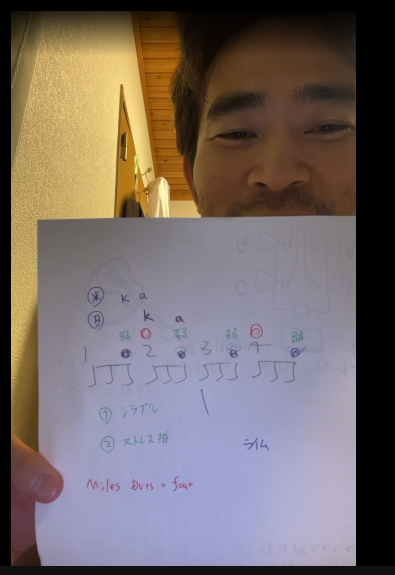 米 K a
日 K a
33 33 33 33
1 2 3 4
① シラブル
② ストレス拍
ライム
Miles Davis = four